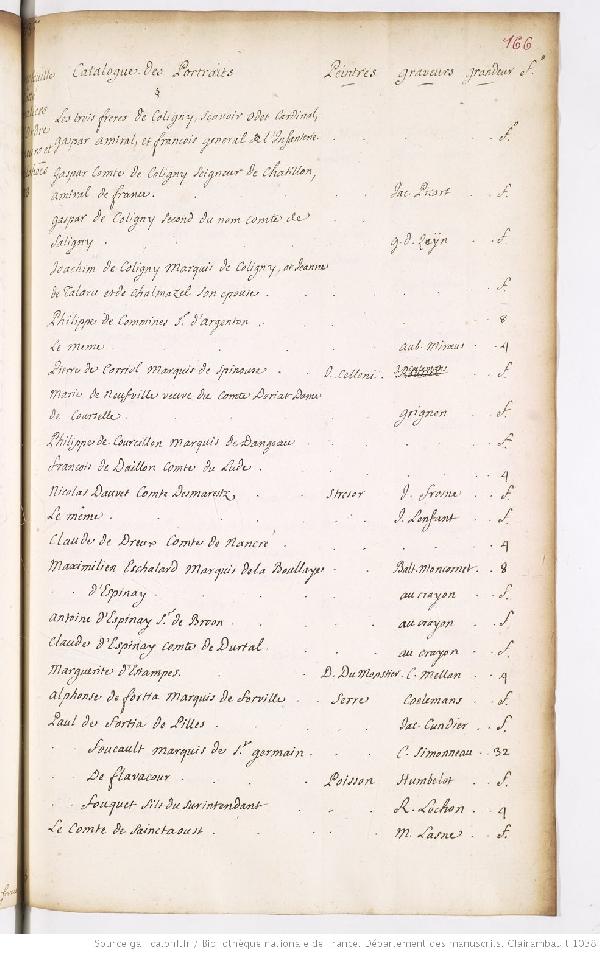 166
Catalogue des Portraits Peintres graveurs grandeur f.º
Les trois freres de Coligny, scavoir odet Cardinal,
gaspar amiral, et francois general de l'Infanterie . . . f.º
gaspar Comte de Coligny Seigneur de Chatillon,
amiral de france. . . . Jac. Picart . . f.
gaspar de Coligny second du nom comte de
Saligny . . . . g. d. . . f.
Joachim de Coligny Marquis de Coligny, et Jeanne
de Talaru et de Chalmazel son epouse . . . . f.
Philippe de Commines S.r d'Argenton . . . . 8
Le meme . . . . aub. Miraeus . . 4
Pierre de Marquis de Spinoure . . . . f.
Marie de Neufville veuve du Comte Dame
de Courtelle . . . . grignon . . f.
Philippe de Courcillon Marquis de Dangeau . . . . f.
francois de Daillon Comte du Lude . . . . 4
Nicolas Dauvet Comte Desmaretz, . . Stresor J. frosne . . f.
Le même . . . . J. Lenfant . . f.
Claude de Dreux Comte de Nancré . . . . 4
Maximilien Eschalard Marquis de la Boullaye . . Balt. Moncornet . . 8
. . d'Espinay . . . . au crayon . . f.
antoine d'Espinay S.r de Broon . . . au crayon . . f.
Claude d'Espinay comte de Durtal . . . au crayon . . f.
Marguerite d'Estampes . . . D. Du Monstier . C. Mellan . . 4
alphonse de fortia Marquis de forville . . Serre Coelemans . . f.
Paul de fortia de Pilles . . . . Jac. Cundier . . f.
. . foucault marquis de S.t germain . . . C. Simonneau . . 32
. . De flavacour . . . Poisson Humbelot . . f.
. . fouquet fils du surintendant . . . R. Lochon . . 4
Le Comte de Sainctaoust . . . . M. Lasne . . f.
Source gallica.bnf.fr / Bibliothèque nationale de France. Département des manuscrits. Clairambault 1038